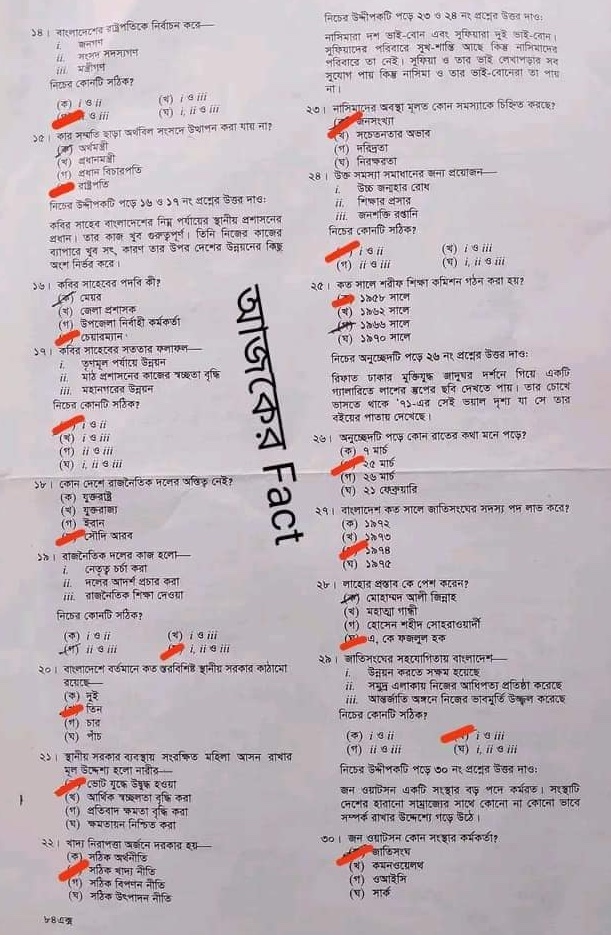 ১৪। বাংলাদেশের রাষ্ট্রপতিকে নির্বাচন করে—
i. জনগণ
ii. সংসদ সদস্যগণ
iii. মন্ত্রীগণ
নিচের কোনটি সঠিক?
(ক) i ও ii
(খ) i ও iii
ও iii
(ঘ) i, ii ও iii
১৫। কার সম্মতি ছাড়া অর্থবিল সংসদে উত্থাপন করা যায় না?
(ক) অর্থমন্ত্রী
(খ) প্রধানমন্ত্রী
(গ) প্রধান বিচারপতি
রাষ্ট্রপতি
নিচের উদ্দীপকটি পড়ে ১৬ ও ১৭ নং প্রশ্নের উত্তর দাও:
কবির সাহেব বাংলাদেশের নিম্ন পর্যায়ের স্থানীয় প্রশাসনের
প্রধান। তার কাজ খুব গুরুত্বপূর্ণ। তিনি নিজের কাজের
ব্যাপারে খুব সৎ, কারণ তার উপর দেশের উন্নয়নের কিছু
অংশ নির্ভর করে।
১৬। কবির সাহেবের পদবি কী?
(ক) মেয়র
(খ) জেলা প্রশাসক
(গ) উপজেলা নির্বাহী কর্মকর্তা
চেয়ারম্যান
১৭। কবির সাহেবের সততার ফলাফল—
i. তৃণমূল পর্যায়ে উন্নয়ন
ii. মাঠ প্রশাসনের কাজের স্বচ্ছতা বৃদ্ধি
iii. মহানগরের উন্নয়ন
নিচের কোনটি সঠিক?
i ও ii
(খ) i ও iii
(গ) ii ও iii
(ঘ) i, ii ও iii
১৮। কোন দেশে রাজনৈতিক দলের অস্তিত্ব নেই?
(ক) যুক্তরাষ্ট্র
(খ) যুক্তরাজ্য
(গ) ইরান
সৌদি আরব
১৯। রাজনৈতিক দলের কাজ হলো—
i. নেতৃত্ব চর্চা করা
ii. দলের আদর্শ প্রচার করা
iii. রাজনৈতিক শিক্ষা দেওয়া
নিচের কোনটি সঠিক?
(ক) i ও ii
(খ) i ও iii
(গ) ii ও iii
i, ii ও iii
২০। বাংলাদেশে বর্তমানে কত স্তরবিশিষ্ট স্থানীয় সরকার কাঠামো
রয়েছে—
(ক) দুই
তিন
(গ) চার
(ঘ) পাঁচ
২১। স্থানীয় সরকার ব্যবস্থায় সংরক্ষিত মহিলা আসন রাখার
মূল উদ্দেশ্য হলো নারীর—
ভোট যুদ্ধে উদ্বুদ্ধ হওয়া
(খ) আর্থিক স্বচ্ছলতা বৃদ্ধি করা
(গ) প্রতিবাদ ক্ষমতা বৃদ্ধি করা
(ঘ) ক্ষমতায়ন নিশ্চিত করা
২২। খাদ্য নিরাপত্তা অর্জনে দরকার হয়—
(ক) সঠিক অর্থনীতি
সঠিক খাদ্য নীতি
(গ) সঠিক বিপণন নীতি
(ঘ) সঠিক উৎপাদন নীতি
৮৪এক্স
আজকের Fact
নিচের উদ্দীপকটি পড়ে ২৩ ও ২৪ নং প্রশ্নের উত্তর দাও:
নাসিমারা দশ ভাই-বোন এবং সুফিয়ারা দুই ভাই-বোন।
সুফিয়াদের পরিবারে সুখ-শান্তি আছে কিন্তু নাসিমাদের
পরিবারে তা নেই। সুফিয়া ও তার ভাই লেখাপড়ার সব
সুযোগ পায় কিন্তু নাসিমা ও তার ভাই-বোনেরা তা পায়
না।
২৩। নাসিমাদের অবস্থা মূলত কোন সমস্যাকে চিহ্নিত করছে?
জনসংখ্যা
(খ) সচেতনতার অভাব
(গ) দরিদ্রতা
(ঘ) নিরক্ষরতা
২৪। উক্ত সমস্যা সমাধানের জন্য প্রয়োজন—
i. উচ্চ জন্মহার রোধ
ii. শিক্ষার প্রসার
iii. জনশক্তি রপ্তানি
নিচের কোনটি সঠিক?
i ও ii
(খ) i ও iii
(গ) ii ও iii
(ঘ) i, ii ও iii
২৫। কত সালে শরীফ শিক্ষা কমিশন গঠন করা হয়?
১৯৫৮ সালে
(খ) ১৯৬২ সালে
(গ) ১৯৬৬ সালে
(ঘ) ১৯৭০ সালে
নিচের অনুচ্ছেদটি পড়ে ২৬ নং প্রশ্নের উত্তর দাও:
রিফাত ঢাকার মুক্তিযুদ্ধ জাদুঘর দর্শনে গিয়ে একটি
গ্যালারিতে লাশের স্তূপের ছবি দেখতে পায়। তার চোখে
ভাসতে থাকে '৭১-এর সেই ভয়াল দৃশ্য যা সে তার
বইয়ের পাতায় দেখেছে।
২৬। অনুচ্ছেদটি পড়ে কোন রাতের কথা মনে পড়ে?
(ক) ৭ মার্চ
২৫ মার্চ
(গ) ২৬ মার্চ
(ঘ) ২১ ফেব্রুয়ারি
২৭। বাংলাদেশ কত সালে জাতিসংঘের সদস্য পদ লাভ করে?
(ক) ১৯৭২
(খ) ১৯৭৩
১৯৭৪
(ঘ) ১৯৭৫
২৮। লাহোর প্রস্তাব কে পেশ করেন?
(ক) মোহাম্মদ আলী জিন্নাহ
(খ) মহাত্মা গান্ধী
(গ) হোসেন শহীদ সোহরাওয়ার্দী
এ, কে ফজলুল হক
২৯। জাতিসংঘের সহযোগিতায় বাংলাদেশ—
i. উন্নয়ন করতে সক্ষম হয়েছে
ii. সমুদ্র এলাকায় নিজের আধিপত্য প্রতিষ্ঠা করেছে
iii. আন্তর্জাতিক অঙ্গনে নিজের ভাবমূর্তি উজ্জ্বল করেছে
নিচের কোনটি সঠিক?
(ক) i ও ii
i ও iii
(গ) ii ও iii
(ঘ) i, ii ও iii
নিচের উদ্দীপকটি পড়ে ৩০ নং প্রশ্নের উত্তর দাও:
জন ওয়াটসন একটি সংস্থার বড় পদে কর্মরত। সংস্থাটি
দেশের হারানো সাম্রাজ্যের সাথে কোনো না কোনো ভাবে
সম্পর্ক রাখার উদ্দেশ্যে গড়ে উঠে।
৩০। জন ওয়াটসন কোন সংস্থার কর্মকর্তা?
জাতিসংঘ
(খ) কমনওয়েলথ
(গ) ওআইসি
(ঘ) সার্ক